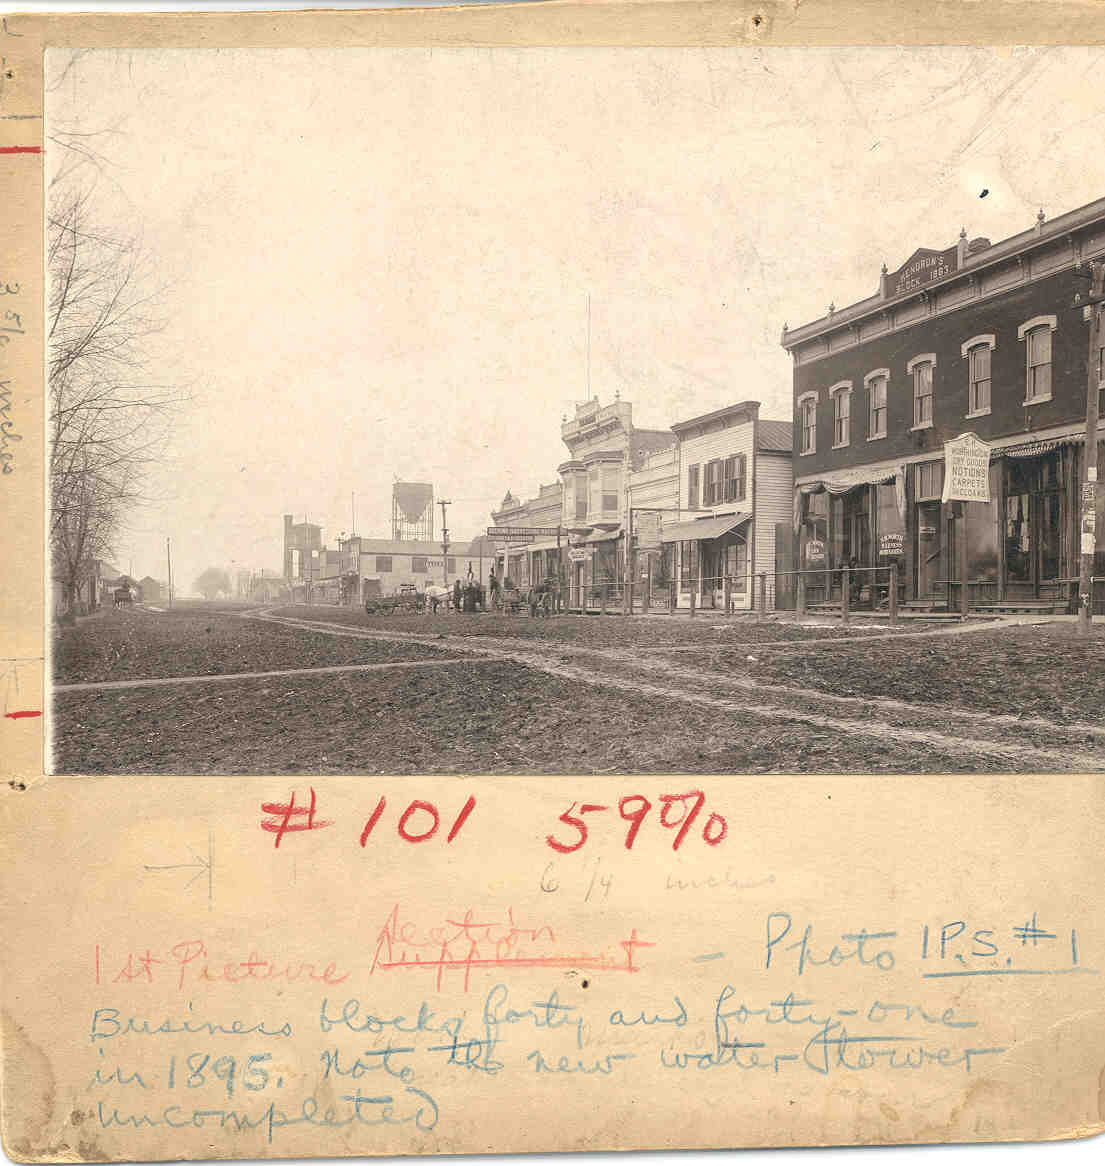 3 5/8 inches
BLOCK 1883
WORTHINGTON
DRY GOODS
NOTIONS
CARPETS
& CLOAKS
# 101 59%
6 1/4 inches
section
1st Picture Supplement - Photo 1P.S. #1
Business blocks forty and forty-one
in 1895. Note the new water tower
uncompleted